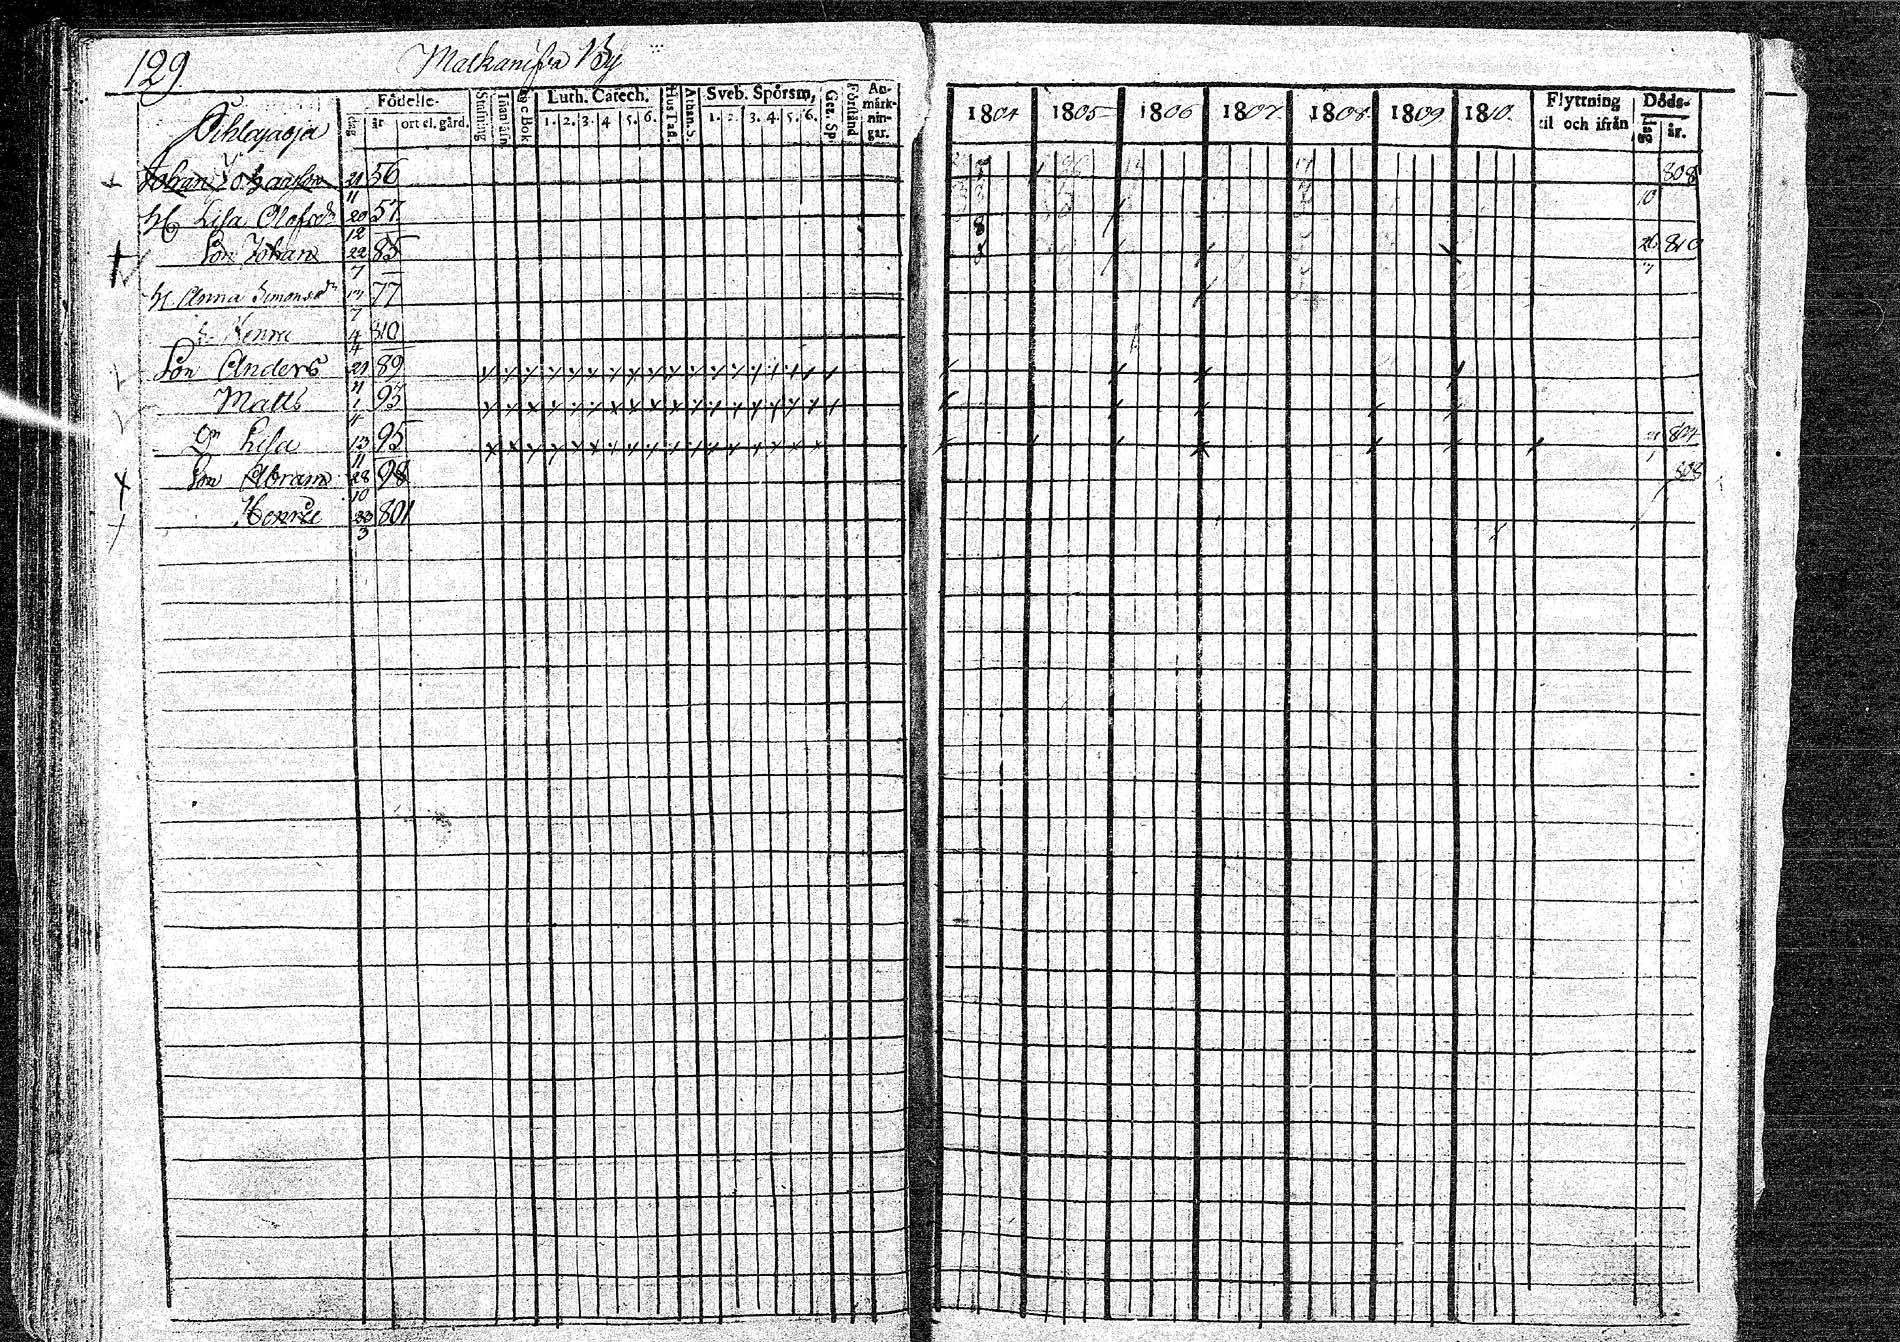 129
By
Födelse-
dag år ort el. gård.
Stafning
Innan läs
A b c Bok
Luth. Catech.
1. 2. 3. 4 5. 6.
Hus Tafl.
Athan. S.
Sveb. Spörsm,
1. 2. 3. 4. 5. 6.
Gez. Sp.
Förstånd
An-
märk-
nin-
gar.
1804 1805 1806 1807 1808 1809 1810
Flyttning
til och ifrån
Döds-
dag år.
Johan Johansson 21/11 56 808
H Lisa Olofsdr 20/12 57 10
Son Johan 22/7 85 26/7 810
H Anna Simonsdr 17/7 77
S. Henric 4/4 810
Son Anders 21/11 89
Matts 1/4 93
Dr Lisa 13/11 95 804
Son Abram 28/10 98 808
Henric 23/3 801